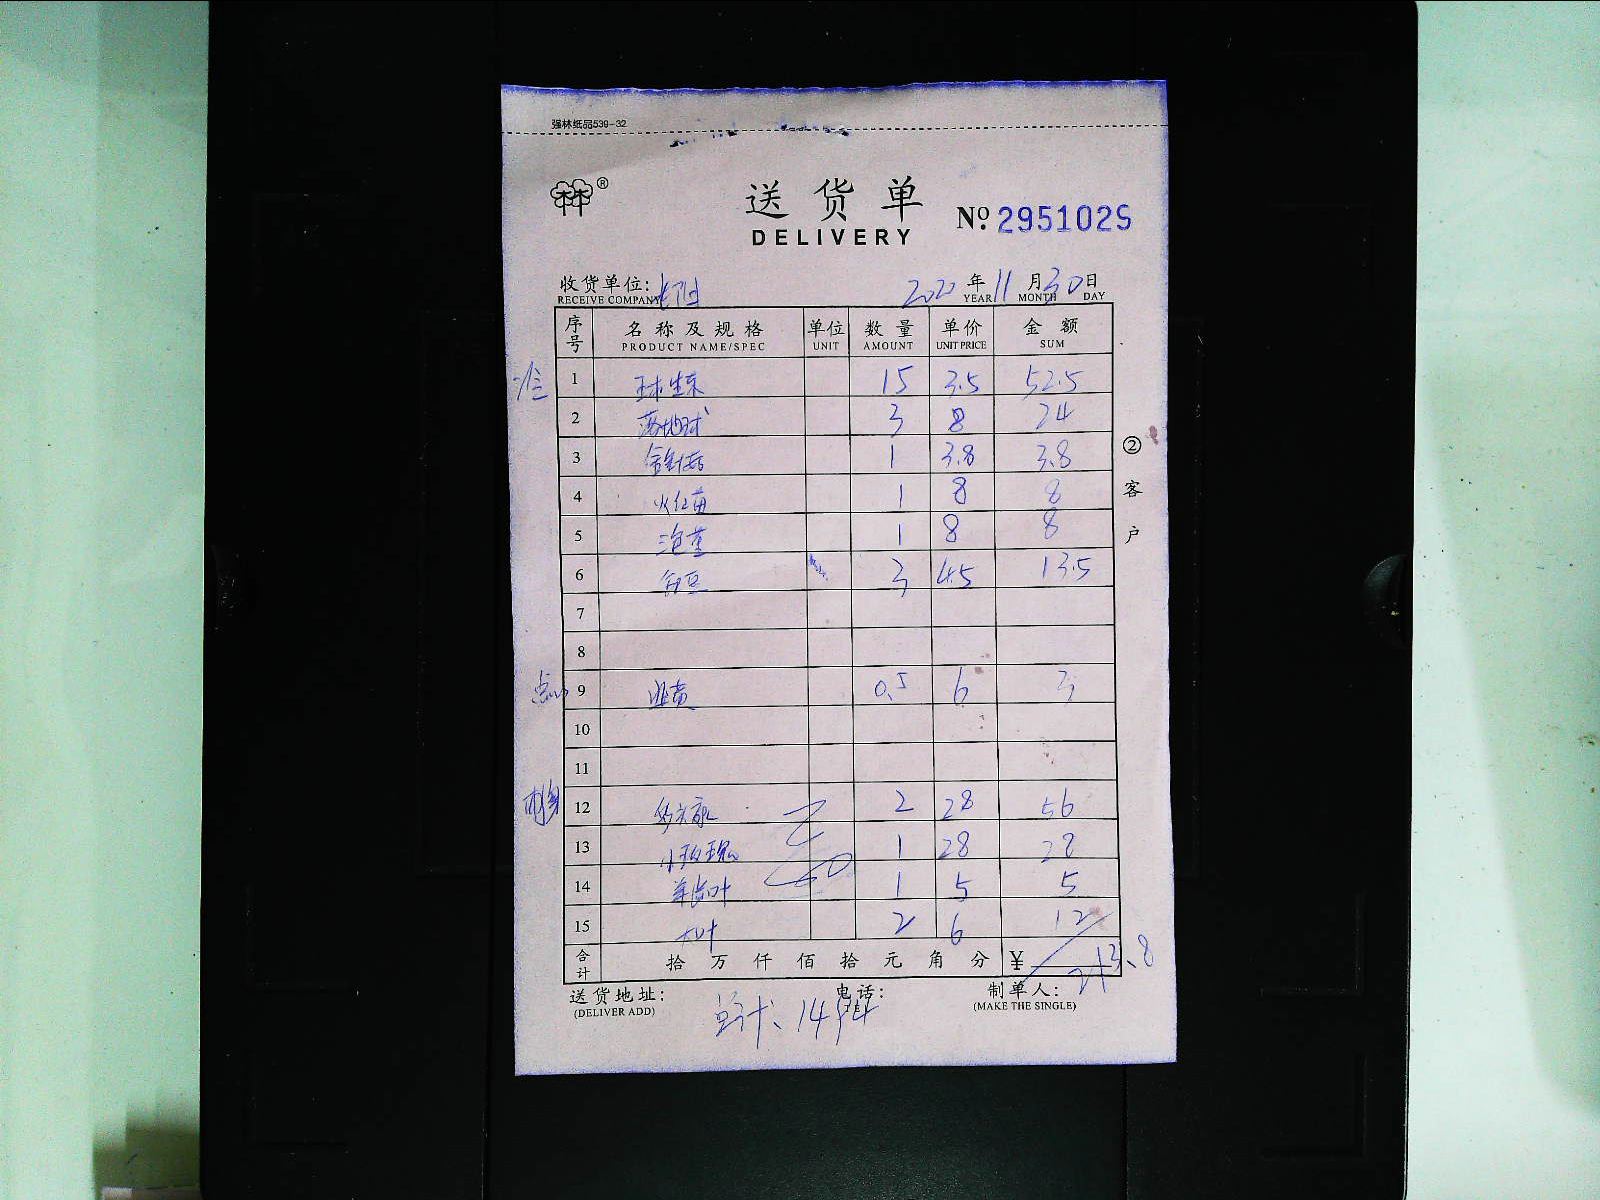 强林纸品539-32
林®
送货单
DELIVERY
Nº. 2951025
收货单位:
RECEIVE COMPANY
2020 年 11 月 30 日
YEAR MONTH DAY
序号 名称及规格 单位 数量 单价 金额
PRODUCT NAME/SPEC UNIT AMOUNT UNIT PRICE SUM
1 球生菜 15 3.5 52.5
2 3 8 24
3 金针菇 1 3.8 3.8
4 火红苗 1 8 8
5 1 8 8
6 3 4.5 13.5
7
8
点心 9 韭黄 0.5 6 3
10
11
12 2 28 56
13 小玫瑰 1 28 28
14 1 5 5
15 2 6 12
合计 拾万仟佰拾元角分 ¥ 213.8
送货地址: 电话: 制单人:
(DELIVER ADD) (MAKE THE SINGLE)
总计、1494
②客户